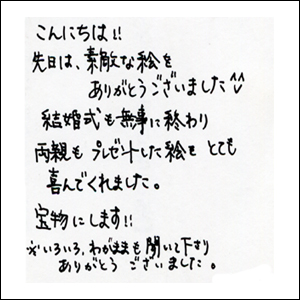 こんにちは!!
先日は、素敵な絵を
ありがとうございました^^
結婚式も無事に終わり
両親もプレゼントした絵をとても
喜んでくれました。
宝物にします!!
※いろいろ、わがままも聞いて下さり
ありがとう ございました。